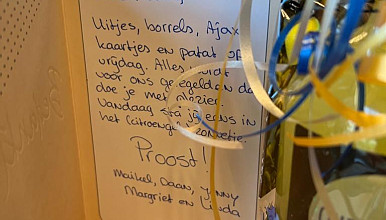 Uitjes, borrels, Ajax
kaartjes en patat op
vrijdag. Alles wordt
voor ons geregeld en dat
doe je met plezier.
Vandaag sta jij eens in
het (citroengele) zonnetje.
Proost!
Maikel, Daan, Jenny
Margriet en Linda